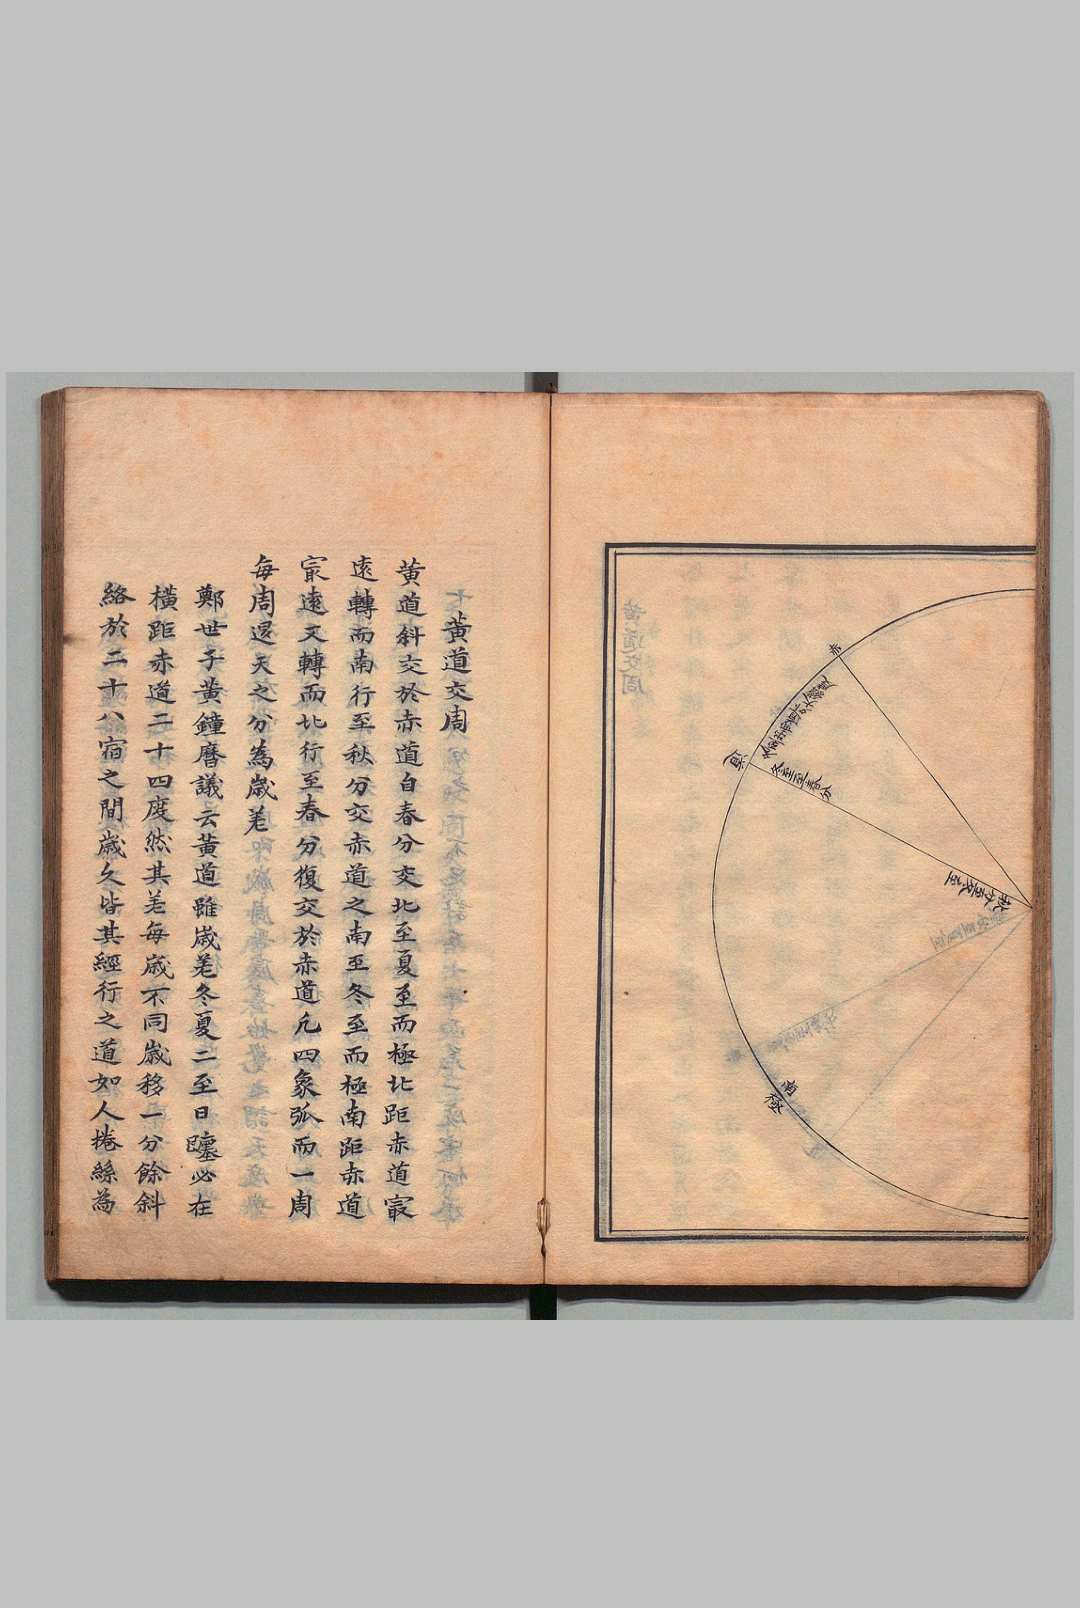 赤
道
冬至至春分
秋分至冬至
南極
黃道交周
黃道斜交於赤道自春分交北至夏至而極北距赤道㝡
遠轉而南行至秋分交赤道之南至冬至而極南距赤道
㝡遠又轉而北行至春分復交於赤道凡四象弧而一周
每周退天之分為歲差
鄭世子黃鐘曆議云黃道雖歲差冬夏二至日躔必在
橫距赤道二十四度然其差每歲不同歲移一分餘斜
絡於二十八宿之間歲久皆其經行之道如人捲絲為